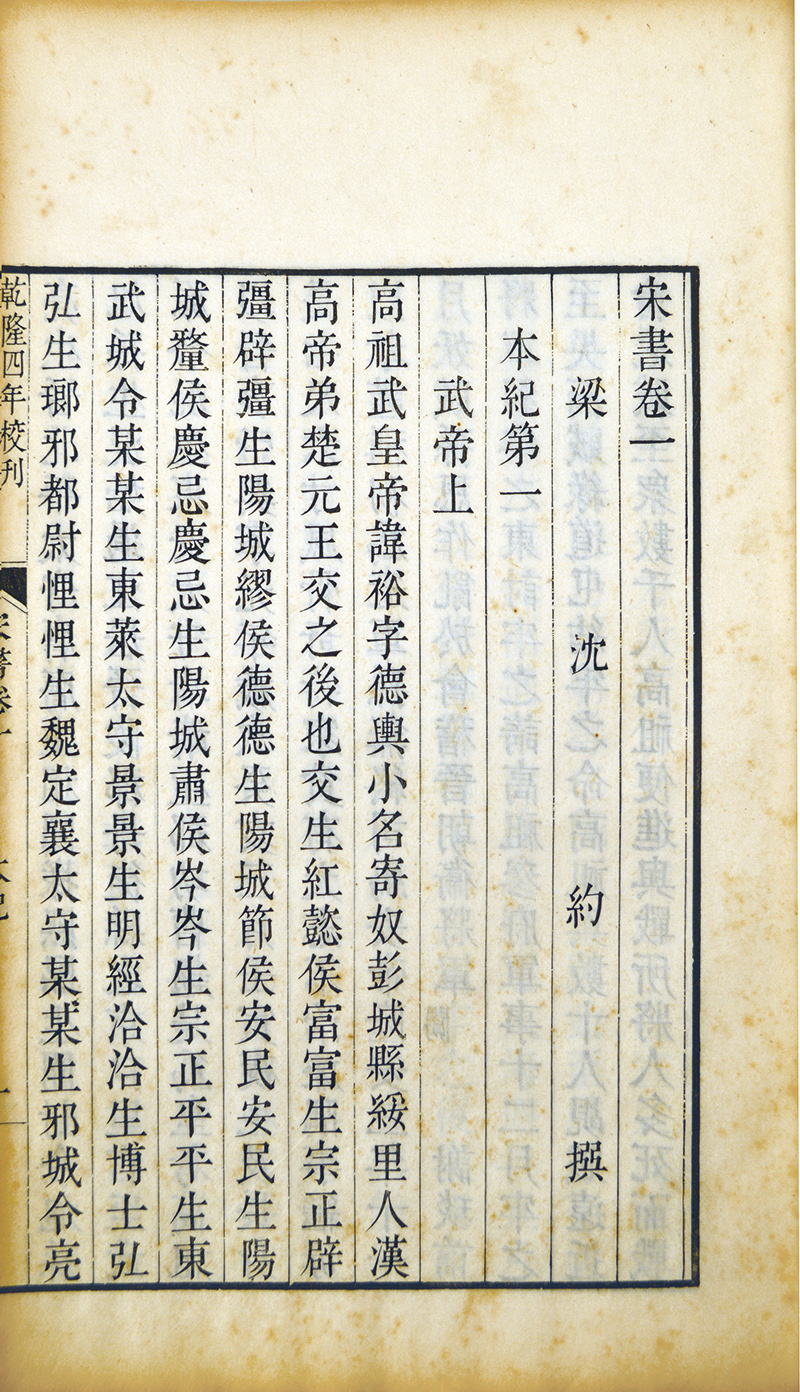 宋書卷一
梁沈約撰
本紀第一
武帝上
高祖武皇帝諱裕字德輿小名寄奴彭城縣綏里人漢
高帝弟楚元王交之後也交生紅懿侯富富生宗正辟
彊辟彊生陽城繆侯德德生陽城節侯安民安民生陽
城釐侯慶忌慶忌生陽城肅侯岑岑生宗正平平生東
武城令某某生東萊太守景景生明經洽洽生博士弘
弘生瑯邪都尉悝悝生魏定襄太守某某生邪城令亮
乾隆四年校刊
宋書卷一
本紀
一